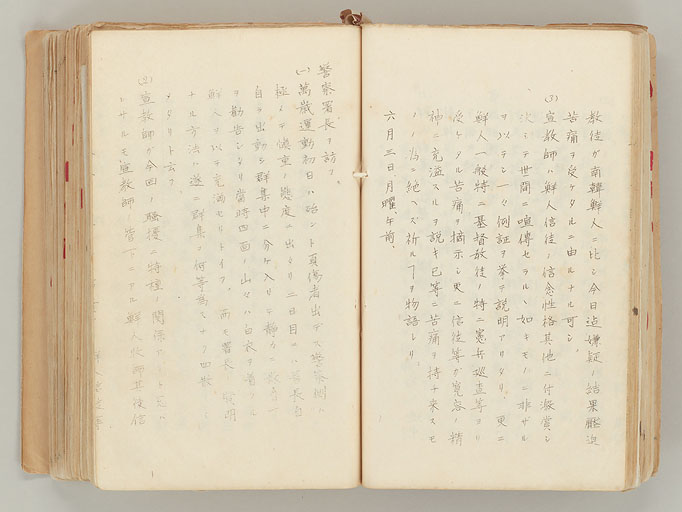 教徒ガ南韓鮮人ニ比シ今日迄嫌疑ノ結果壓迫
苦痛ヲ受ケタルニ由ルナル可シ
(3) 宣教師ハ鮮人信徒ノ信念性格其他ニ付激賞シ
次ニテ世間ニ喧傳セラルヽ如キモノニ非ザル
ヲ以テシ一々例証ヲ挙ゲ説明アリタリ 更ニ
鮮人一般特ニ基督教徒ノ特ニ憲兵巡査等ヨリ
受ケタル苦痛ヲ摘示シ更ニ信徒等ガ寛容ノ精
神ニ充溢スルヲ説キ已等ニ苦痛ヲ持チ来スモ
ノノ為ニ絶ヘズ祈ルヿヲ物語レリ
六月三日月曜、午前、
警察署長ヲ訪フ
(一) 萬歳運動初日ハ殆ント負傷者出デス警察側ハ
極メテ慎重ノ態度ニ出デタリ二日目ニハ署長自
自ラ出動シ群集中ニ分ケ入リテ静カニ散
ヲ勧告シタリ當時四面ノ山々ハ白衣ヲ着タル
鮮人ヲ以テ充満セリトイフ 而モ署長ノ賢明
ナル方法ハ遂ニ群集ヲ何等為スナク四散
メタリト云フ
(2) 宣教師ガ今回ノ騒擾ニ特種ノ関係アリト
トサルモ宣教師ノ管下ニアル鮮人牧師其他信